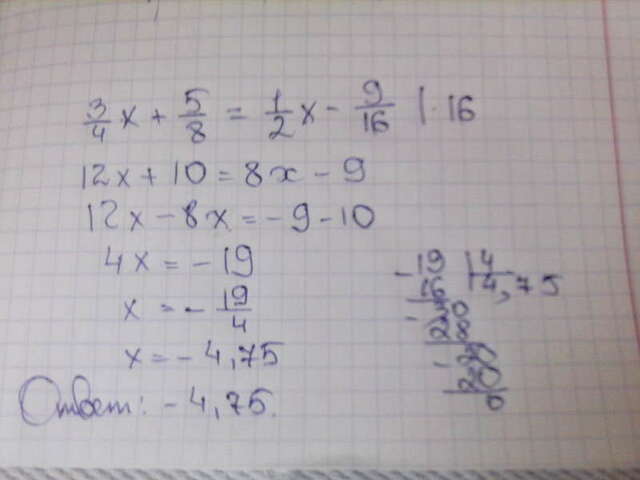 3/4 x + 5/8 = 1/2 x - 9/16 | · 16
12x + 10 = 8x - 9
12x - 8x = -9 - 10
4x = -19
x = - 19/4
x = -4,75
Ответ: -4,75.
- 19 | 4
16 | 4,75
30
- 28
- 20
20
0